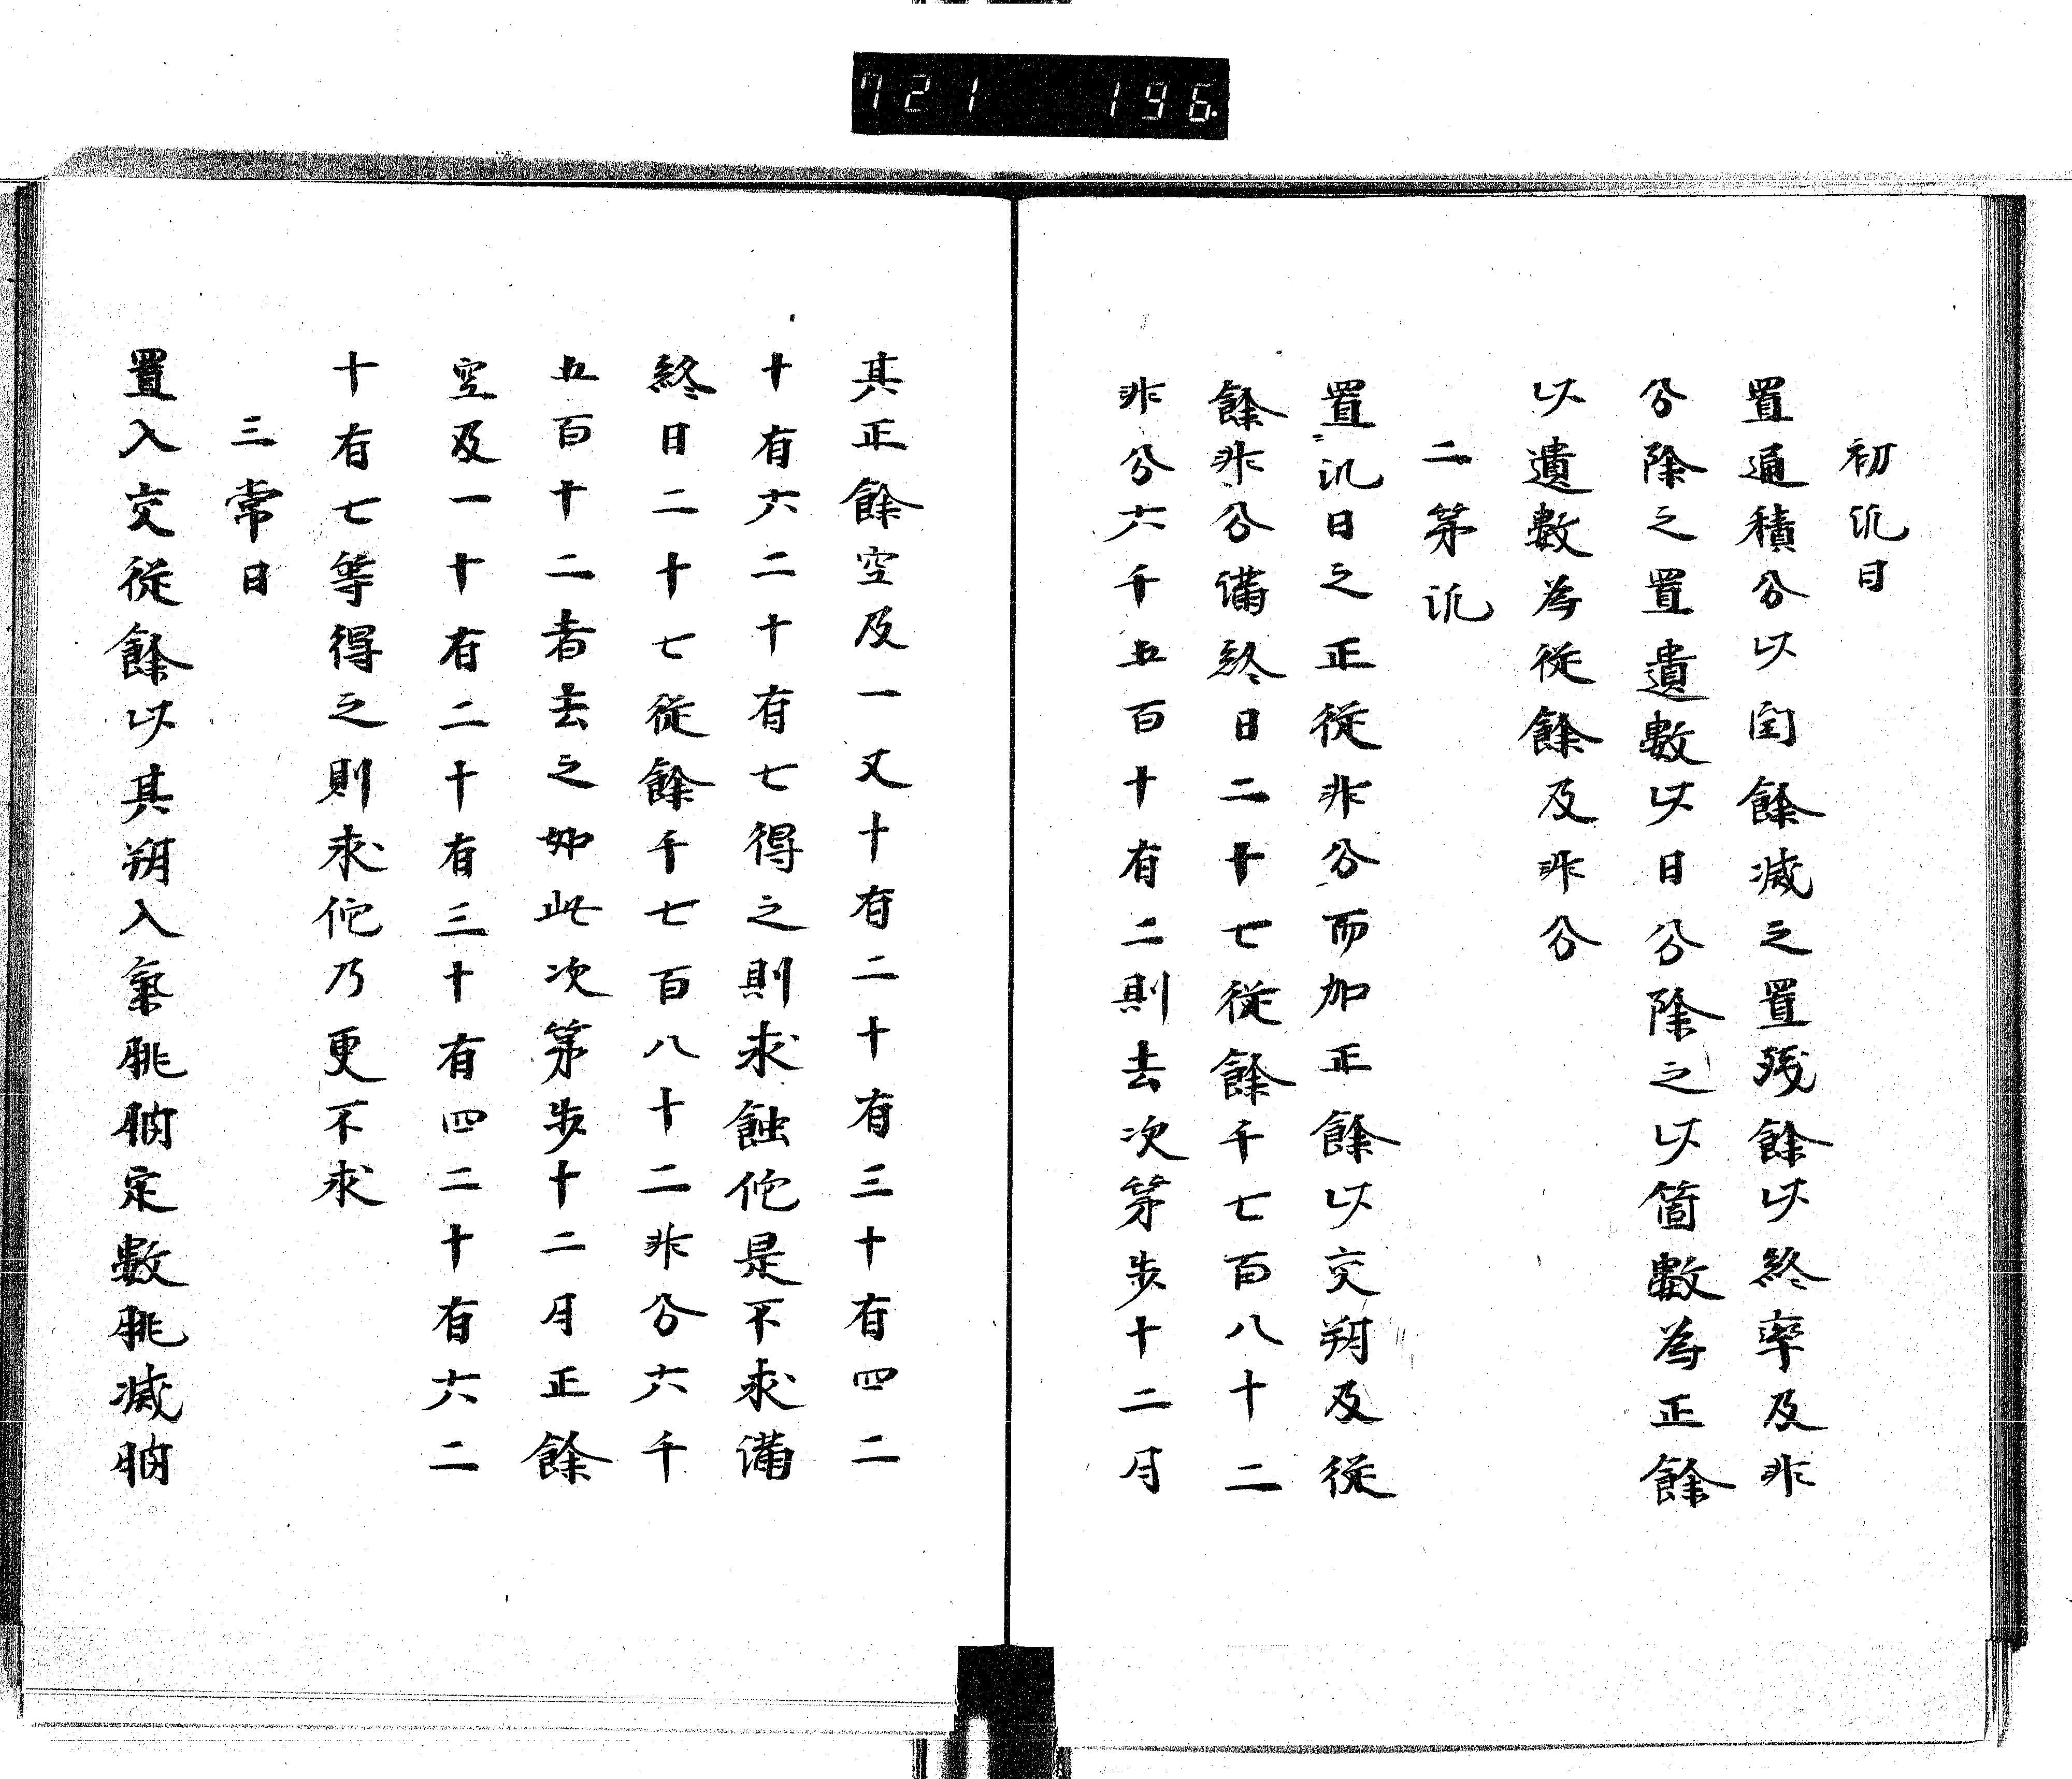 721 196.
初汎日
置通積分以閏餘減之置残餘以終率及非
分除之置遺數以日分除之以箇數為正餘
以遺數為従餘及非分
二第汎
置汎日之正従非分而加正餘以交朔及従
餘非分满終日二十七従餘千七百八十二
非分六千五百十有二則去次第歩十二月
其正餘空及一又十有二十有三十有四二
十有六二十有七得之則求蝕佗是不求满
終日二十七従餘千七百八十二非分六千
五百十二者去之如此次第歩十二月正餘
空及一十有二十有三十有四二十有六二
十有七等得之則求佗乃更不求
三常日
置入交従餘以其朔入氣朓朒定數朓減朒